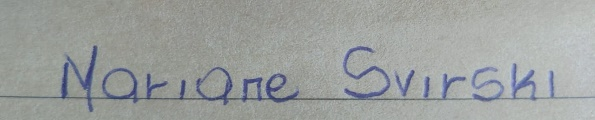 Mariane Svirski